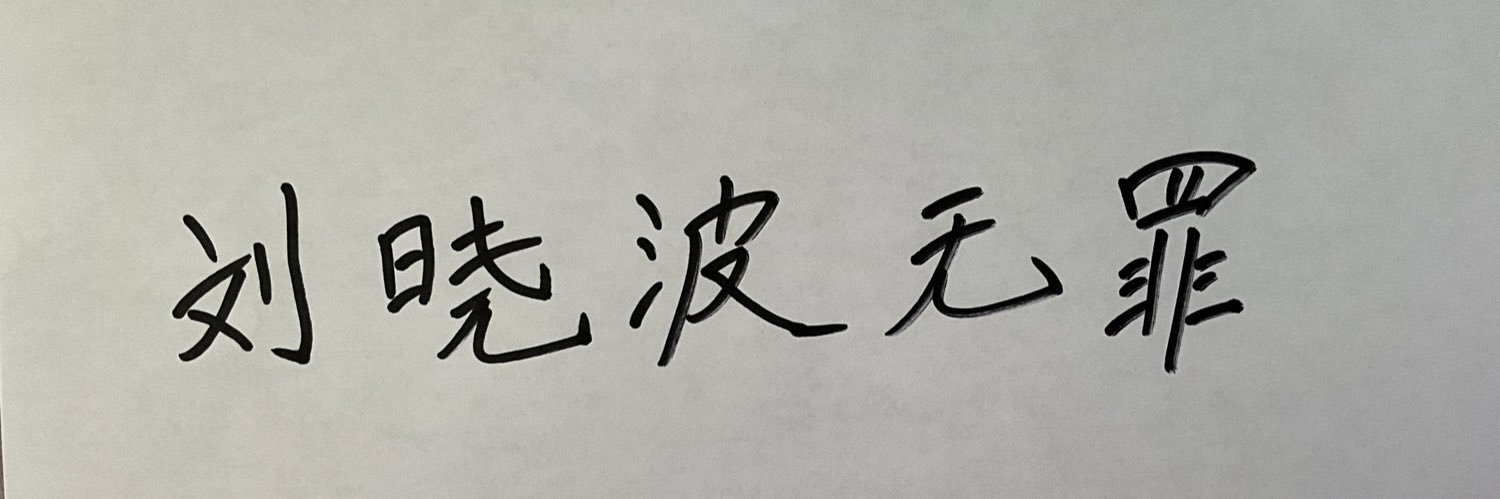 刘晓波无罪